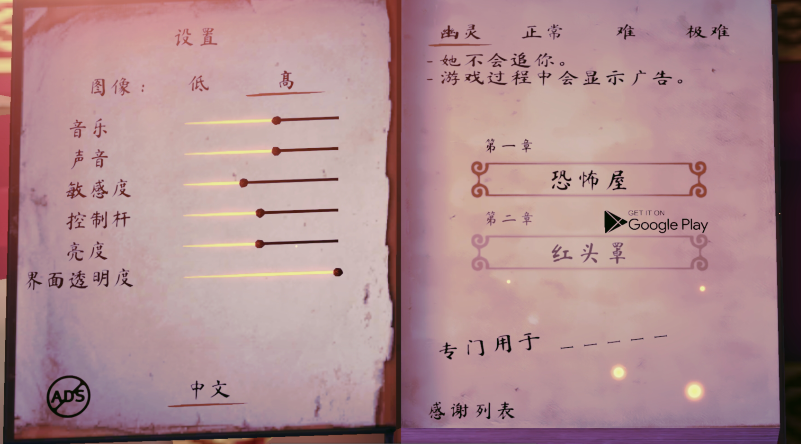 设置
图像： 低 高
音乐
声音
敏感度
控制杆
亮度
界面透明度
ADS
中文
幽灵 正常 难 极难
- 她不会追你。
- 游戏过程中会显示广告。
第一章
恐怖屋
第二章
GET IT ON
Google Play
红头罩
专门用于 _ _ _ _ _
感谢列表